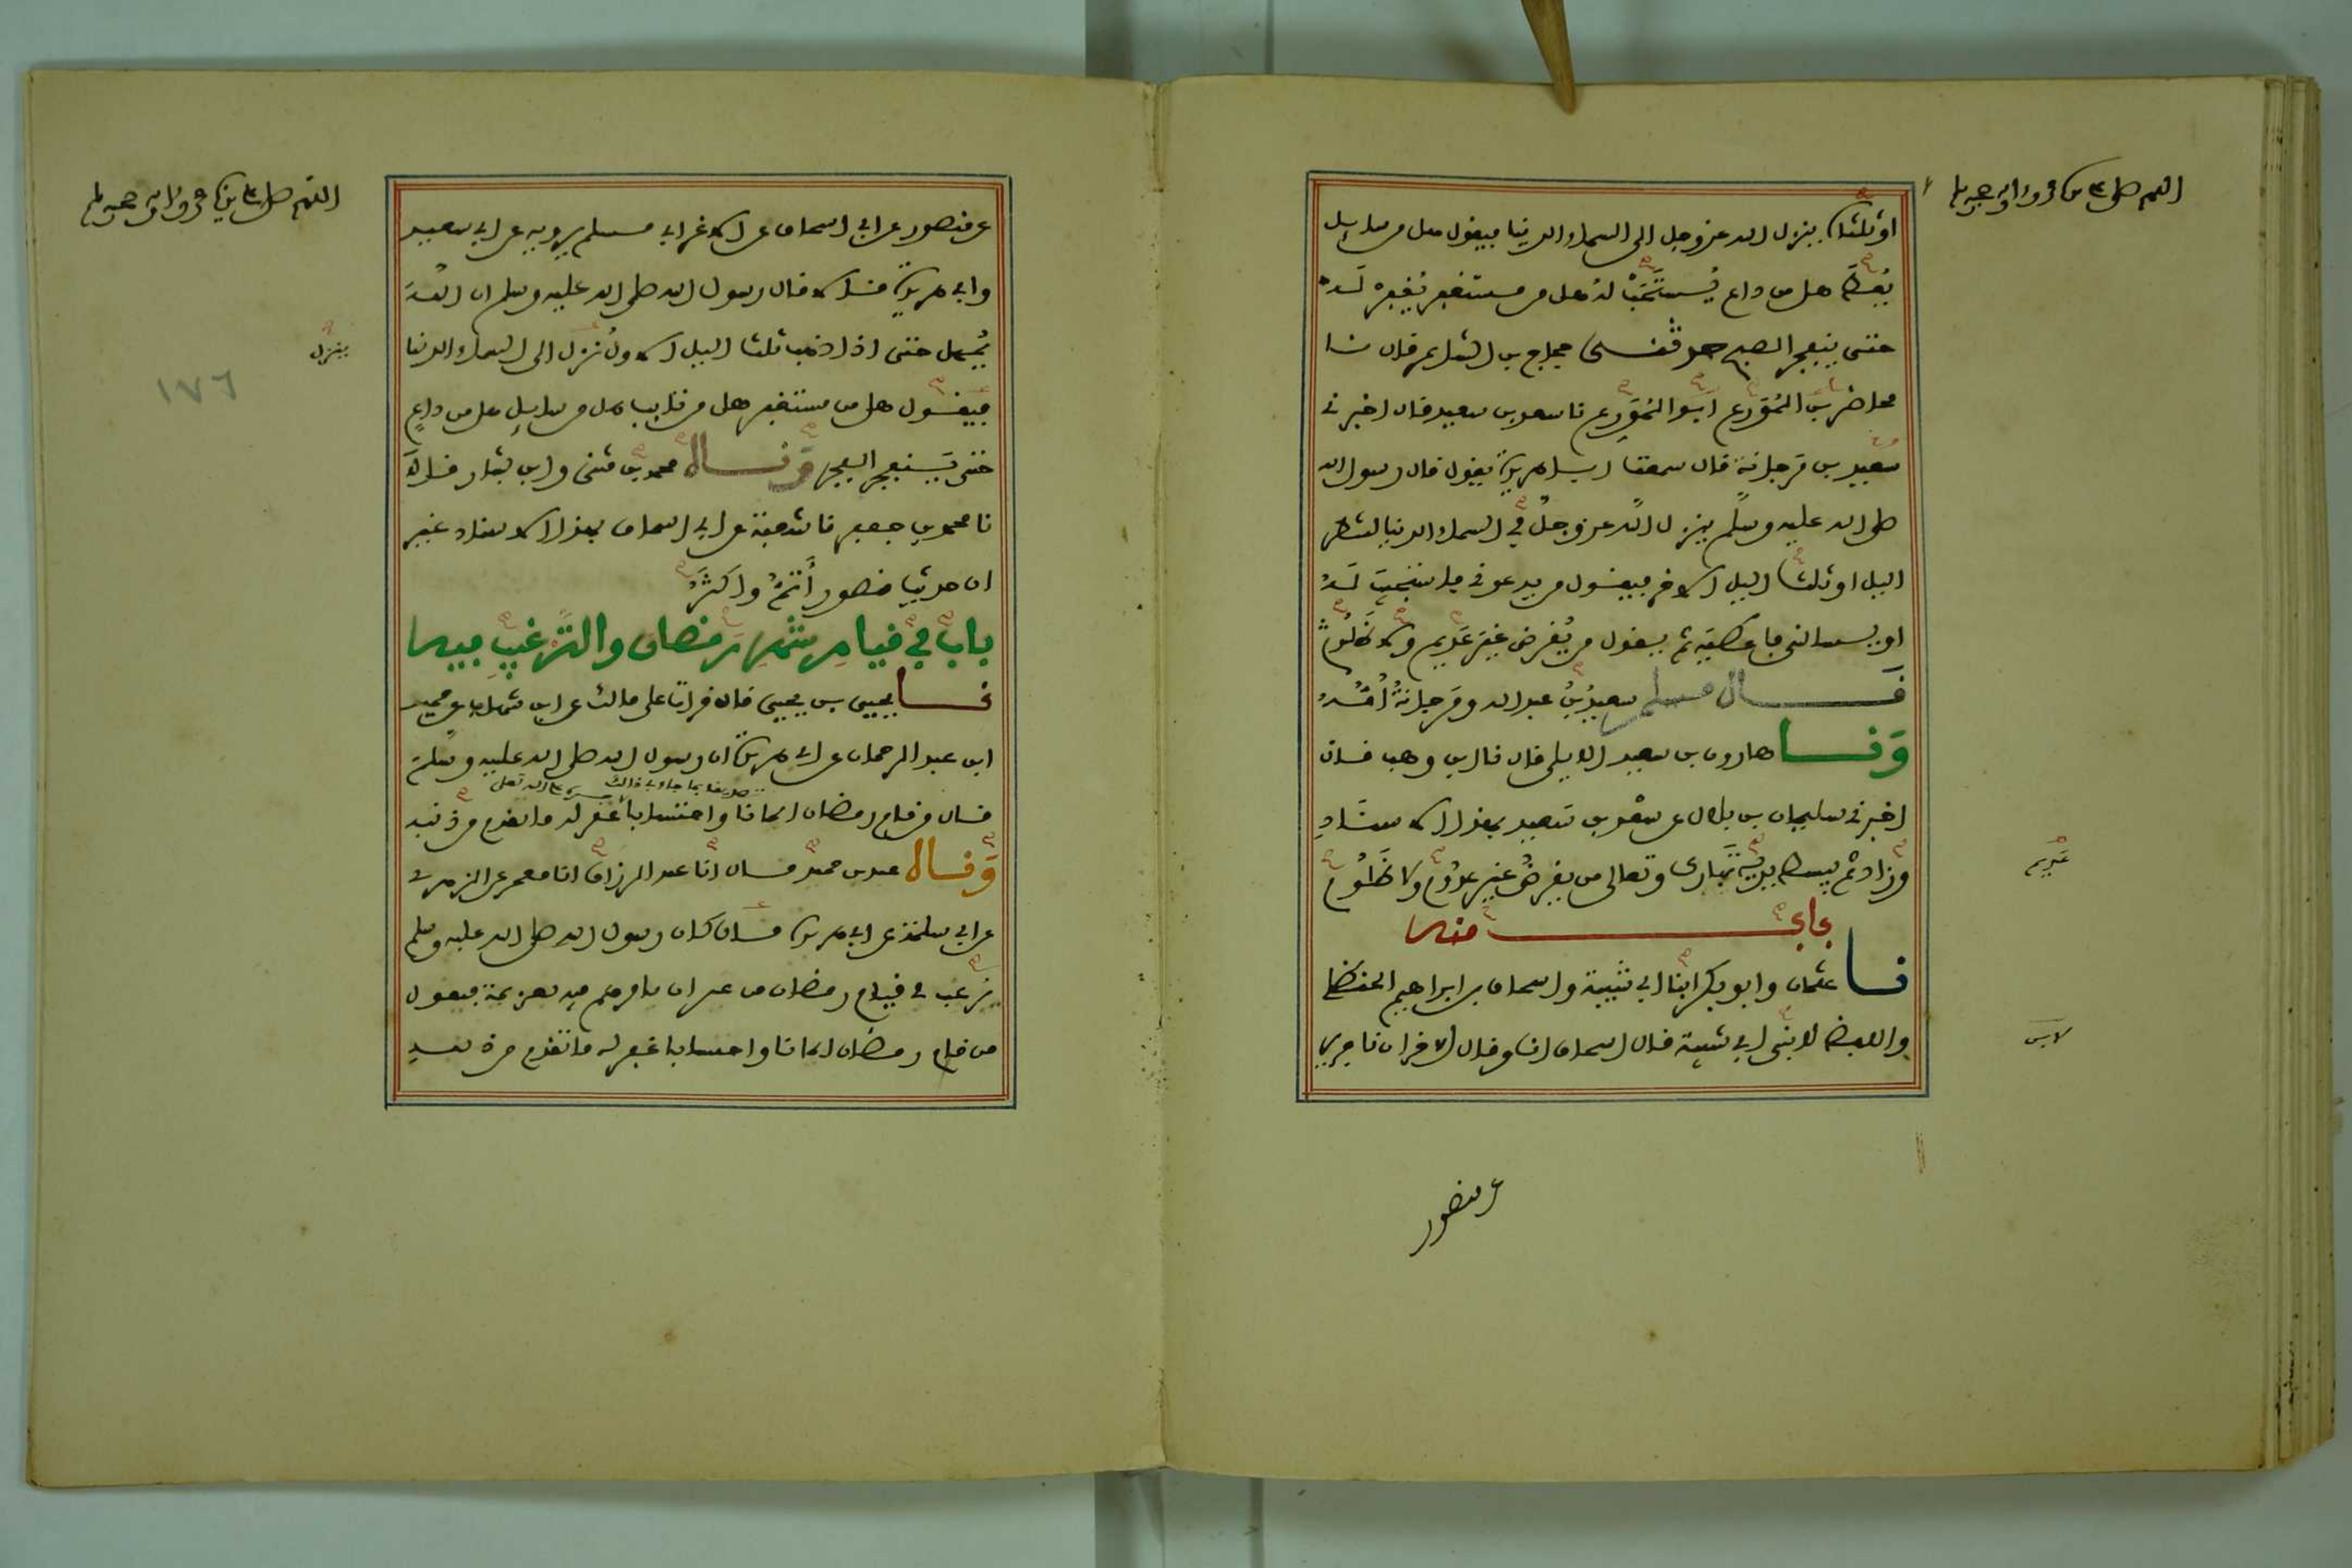 اللهم صل على سيدنا محمد وآله وصحبه وسلم
او ثلثاه ينزل الله عز وجل الى السماء الدنيا فيقول هل من سايل
يعطى هل من داع يستجاب له هل من مستغفر يغفر له
حتى ينفجر الصبح حدثنى حجاج بن الشاعر قال نا
محاضر بن المورع ابو المورع نا سعد بن سعيد قال اخبرنى
سعيد بن مرجانة قال سمعت ابا هريرة يقول قال رسول الله
صلى الله عليه وسلم ينزل الله عز وجل في السماء الدنيا لشطر
اليل او ثلث اليل الاخر فيقول من يدعونى فاستجيب له
او يسالنى فاعطيه ثم يقول من يقرض غير عديم ولا ظلوم
قال مسلم سعيد بن عبد الله ومرجانة امه
ونا هارون بن سعيد الايلى قال نا ابن وهب قال
اخبرنى سليمان بن بلال عن سعد بن سعيد بهذا الاسناد
وزاد ثم يبسط يديه تبارك وتعالى من يقرض غير عدوم ولا ظلوم
عديم
باب منه
نا عثمان وابو بكر ابنا ابي شيبة واسحاق بن ابراهيم الحنظلي
واللفظ لابنى ابي شيبة قال اسحاق انا وقال الاخران نا جرير
لابني
عن منصور
اللهم صل على سيدنا محمد وآله وصحبه وسلم
عن منصور عن ابي اسحاق عن الاغر ابي مسلم يرويه عن ابي سعيد
وابي هريرة قالا قال رسول الله صلى الله عليه وسلم ان الله
يمهل حتى اذا ذهب ثلث اليل الاول نزل الى السماء الدنيا
ينزل
١٧٦
فيقول هل من مستغفر هل من تايب هل من سايل هل من داع
حتى ينفجر الفجر وناه محمد بن مثنى وابن بشار قالا
نا محمد بن جعفر نا شعبة عن ابي اسحاق بهذا الاسناد غير
ان حديث منصور أتم واكثر
باب في قيام شهر رمضان والترغيب فيه
نا يحيى بن يحيى قال قرات على مالك عن ابن شهاب عن حميد
ابن عبد الرحمان عن ابي هريرة ان رسول الله صلى الله عليه وسلم
قال من قام رمضان ايمانا واحتسابا غفر له ما تقدم من ذنبه
وناه عبد بن حميد قال انا عبد الرزاق انا معمر عن الزهري
عن ابي سلمة عن ابي هريرة قال كان رسول الله صلى الله عليه وسلم
يرغب في قيام رمضان من غير ان يامرهم فيه بعزيمة فيقول
من قام رمضان ايمانا واحتسابا غفر له ما تقدم من ذنبه